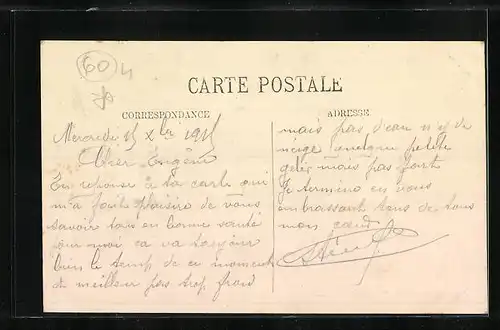 60 4
CARTE POSTALE
CORRESPONDANCE
ADRESSE
Mercredi 15 Xbre 1915
Cher Eugène
En réponse à ta carte qui
m'a fait plaisire de vous
savoir tous en bonne santé
pour moi ca va toujour
bien le temp de ce moment
et meilleur pas trop froid
mais pas d'eau n'y de
neige quelque petite
gelés mais pas fort
Je termine en vous
embrassant tous de tous
mon cœur